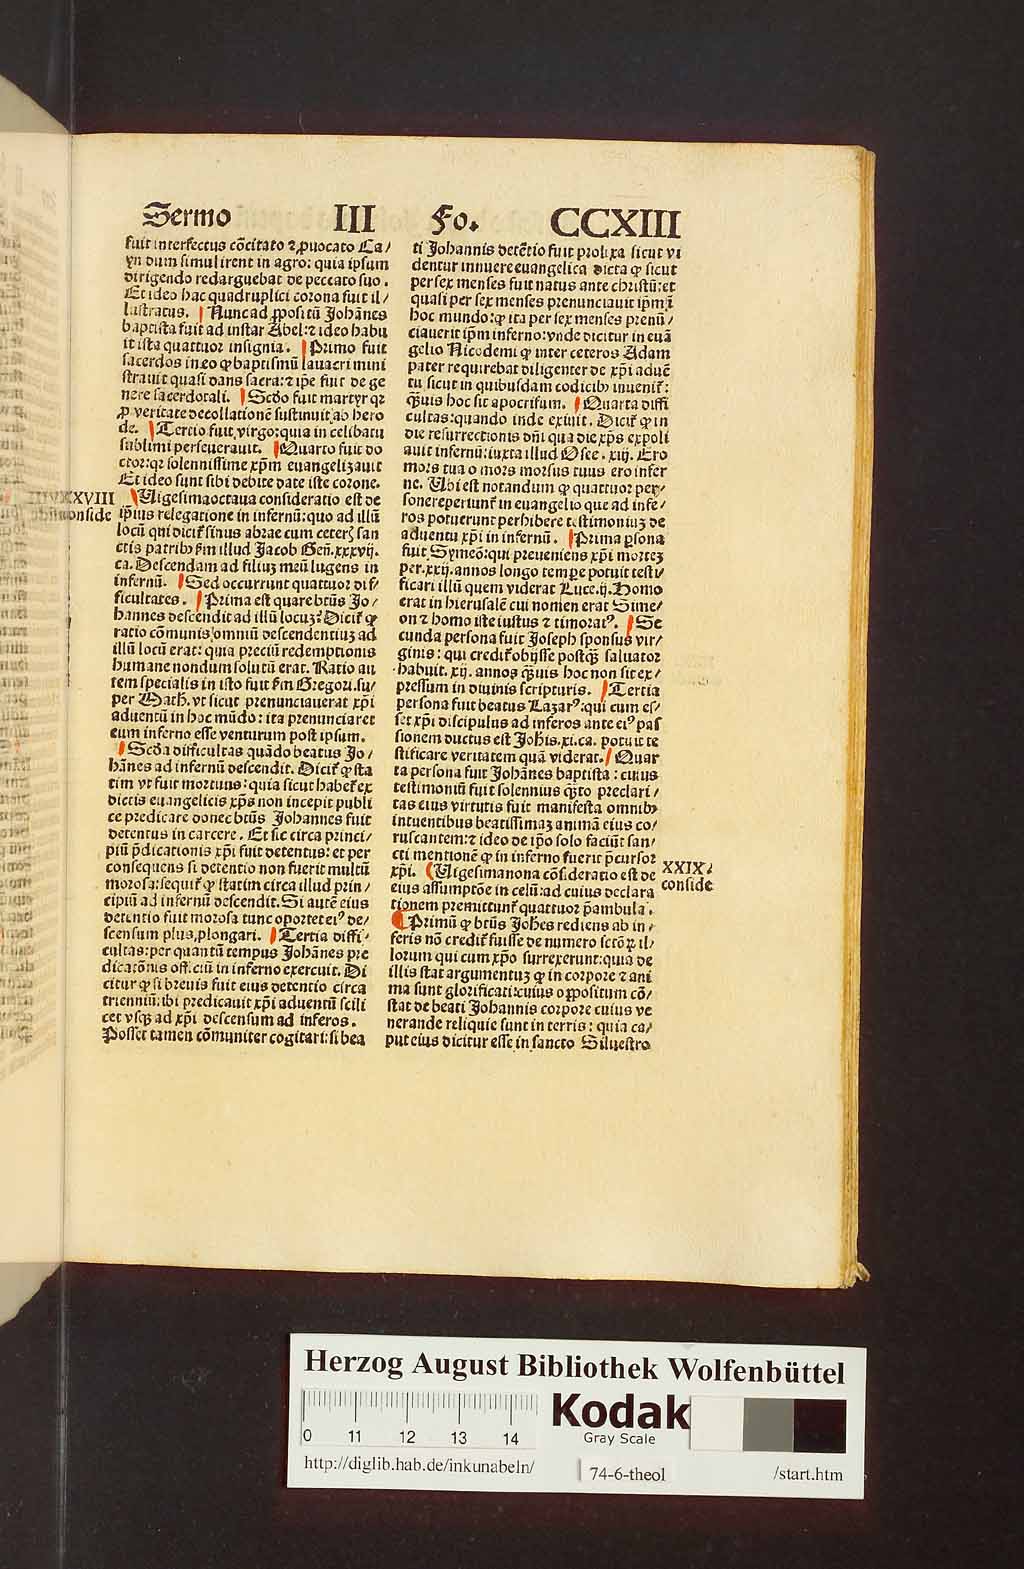 Sermo III Fo. CCXIII
fuit interfectus cōcitato ⁊ ꝓuocato Ca/
yn dum simul irent in agro: quia ipsum
dirigendo redarguebat de peccato suo.
Et ideo hac quadruplici corona fuit il/
lustratus. Nunc ad ꝓpositū Johānes
baptista fuit ad instar Abel: ⁊ ideo habu
it ista quattuor insignia. Primo fuit
sacerdos in eo ꝙ baptismū lauacri mini
strauit quasi dans sacra: ⁊ ip̄e fuit de ge
nere sacerdotali. Scd̄o fuit martyr qꝛ
ꝓ veritate decollationē sustinuit ab hero
de. Tercio fuit virgo: quia in celibatu
sublimi perseuerauit. Quarto fuit do
ctor: qꝛ solennissime xp̄m euangelizauit
Et ideo sunt sibi debite date iste corone.
XXVIII
conside
Uigesimaoctaua consideratio est de
ip̄ius relegatione in infernū: quo ad illū
locū qui dicit᷑ sinus abrae cum ceteꝝ san
ctis patribꝰ ẜm illud Jacob Geñ. xxxvij.
ca. Descendam ad filiuꝫ meū lugens in
infernū. Sed occurrunt quattuor dif/
ficultates. Prima est quare btūs Jo/
hannes descendit ad illū locuꝫ? Dicit᷑ ꝙ
ratio cōmunis omniū descendentiuꝫ ad
illū locū erat: quia preciū redemptionis
humane nondum solutū erat. Ratio au
tem specialis in isto fuit ẜm Gregori. su/
per Math. vt sicut prenunciauerat xp̄i
aduentū in hoc mūdo: ita prenunciaret
eum inferno esse venturum post ipsum.
Scd̄a difficultas quādo beatus Jo/
hānes ad infernū descendit. Dicit᷑ ꝙ sta
tim vt fuit mortuus: quia sicut habet᷑ ex
dictis euangelicis xp̄s non incepit publi
ce predicare donec btūs Johannes fuit
detentus in carcere. Et sic circa princi/
piū p̄dicationis xp̄i fuit detentus: et per
consequens si detentio non fuerit multū
morosa: sequit᷑ ꝙ statim circa illud prin/
cipiū ad infernū descendit. Si autē eius
detentio fuit morosa tunc oportet eiꝰ de/
scensum plus ꝓlongari. Tertia diffi-
cultas: per quantū tempus Johānes pre
dicatōnis officiū in inferno exercuit. Di
citur ꝙ si breuis fuit eius detentio circa
trienniū: ibi predicauit xp̄i aduentū scili
cet vsqꝫ ad xp̄i descensum ad inferos.
Posset tamen cōmuniter cogitari: si bea
ti Johannis detētio fuit prolixa sicut vi
dentur innuere euangelica dicta ꝙ sicut
per sex menses fuit natus ante christū: et
quasi per sex menses prenunciauit ip̄m ī
hoc mundo: ꝙ ita per sex menses prenū/
ciauerit ip̄m inferno: vnde dicitur in euā
gelio Nicodemi ꝙ inter ceteros Adam
pater requirebat diligenter de xp̄i aduē
tu sicut in quibusdam codicibꝰ inuenit᷑:
quis hoc sit apocrifum. Quarta diffi
cultas: quando inde exiuit. Dicit᷑ ꝙ in
die resurrectionis dn̄i qua die xp̄s expoli
auit infernū: iuxta illud Osee. xiij. Ero
mors tua o mors morsus tuus ero infer
ne. Ubi est notandum ꝙ quattuor per/
sone reperiunt᷑ in euangelio que ad infe/
ros potuerunt perhibere testimoniuꝫ de
aduentu xp̄i in infernū. Prima ꝑsona
fuit Symeō: qui preueniens xp̄i morteꝫ
per. xxij. annos longo tempe potuit testi/
ficari illū quem viderat Luce. ij. Homo
erat in hierusalē cui nomen erat Sime/
on ⁊ homo iste iustus ⁊ timoratꝰ. Se
cunda persona fuit Joseph sponsus vir/
ginis: qui credit᷑ obijsse postqꝫ saluator
habuit. xij. annos quis hoc non sit ex/
pressum in diuinis scripturis. Tertia
persona fuit beatus Lazarꝰ: qui cum es/
set xp̄i discipulus ad inferos ante eiꝰ pas
sionem ductus est Johis. xi. ca. potuit te
stificare veritatem quā viderat. Quar
ta persona fuit Johānes baptista: cuius
testimoniū fuit solennius q̄to preclari/
tas eius virtutis fuit manifesta omnibꝰ
intuentibus beatissimaꝫ animā eius co/
ruscantem: ⁊ ideo de ip̄o solo faciūt san/
cti mentionē ꝙ in inferno fuerit p̄cursor
xp̄i. Uigesimanona cōsideratio est de
XXIX
conside
eius assumptōe in celū: ad cuius declara
tionem premittunt᷑ quattuor p̄ambula.
Primū ꝙ btūs Johes rediens ab in/
feris nō credit᷑ fuisse de numero sctōꝝ il/
lorum qui cum xp̄o surrexerunt: quia de
illis stat argumentuꝫ ꝙ in corpore ⁊ ani
ma sunt glorificati: cuius oppositum cō/
stat de beati Johannis corpore cuius ve
nerande reliquie sunt in terris: quia ca/
put eius dicitur esse in sancto Siluestro
Herzog August Bibliothek Wolfenbüttel
0 11 12 13 14
Kodak
Gray Scale
http://diglib.hab.de/inkunabeln/
74-6-theol
/start.htm